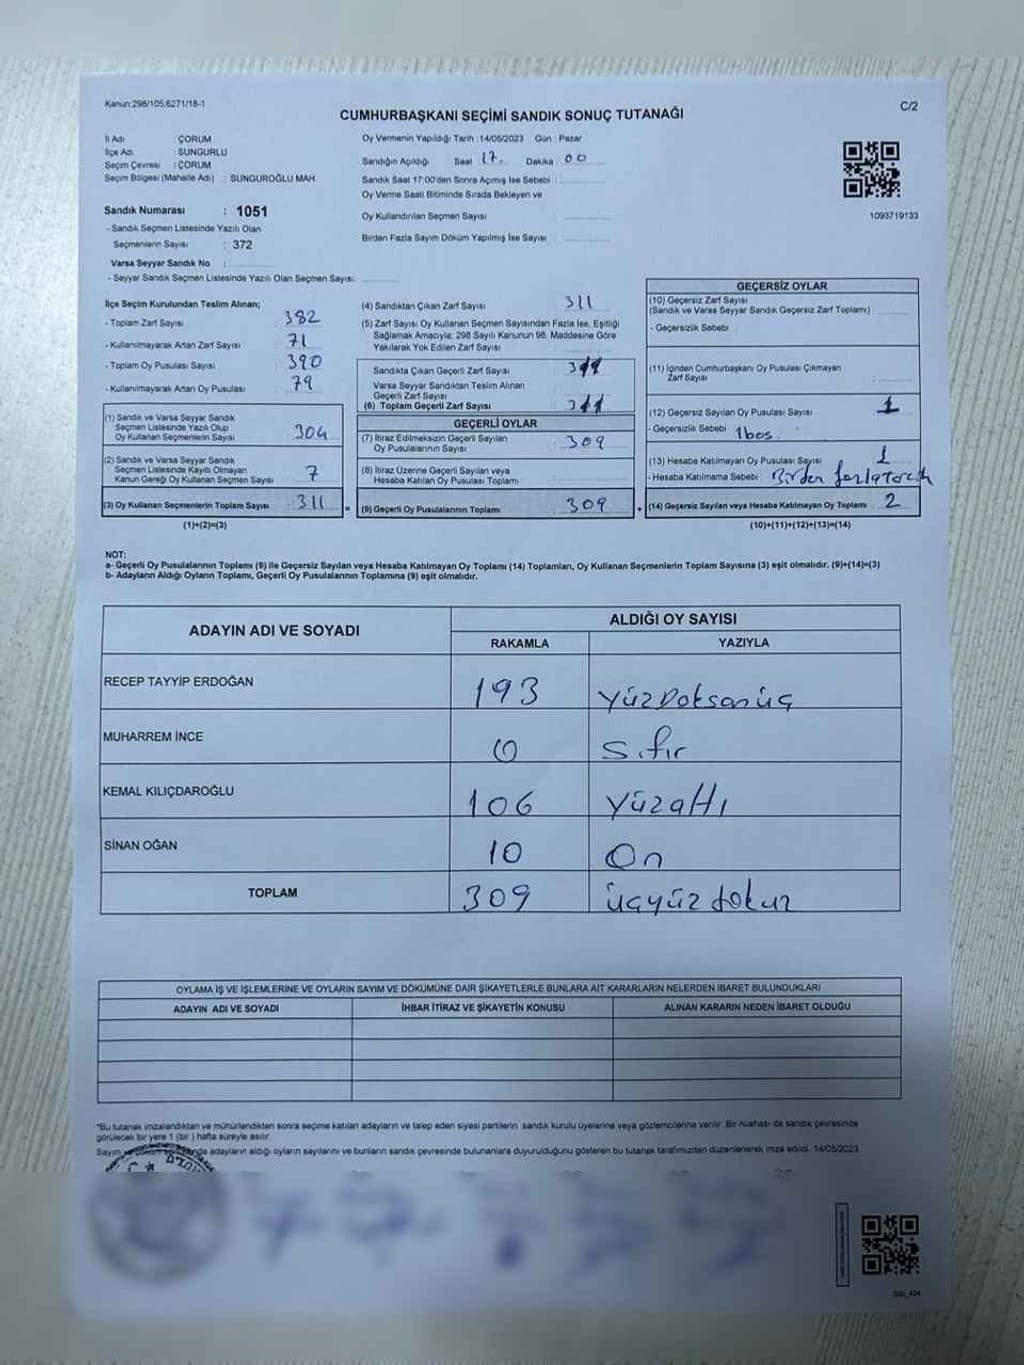 Kanun:298/105;6271/18-1
C/2
CUMHURBAŞKANI SEÇİMİ SANDIK SONUÇ TUTANAĞI
İl Adı : ÇORUM
İlçe Adı : SUNGURLU
Seçim Çevresi : ÇORUM
Seçim Bölgesi (Mahalle Adı) : SUNGUROĞLU MAH.
Sandık Numarası : 1051
- Sandık Seçmen Listesinde Yazılı Olan
Seçmenlerin Sayısı : 372
Varsa Seyyar Sandık No :
- Seyyar Sandık Seçmen Listesinde Yazılı Olan Seçmen Sayısı:
Oy Vermenin Yapıldığı Tarih : 14/05/2023 Gün : Pazar
Sandığın Açıldığı Saat 17. Dakika 00
Sandık Saat 17:00'den Sonra Açımış İse Sebebi :
Oy Verme Saati Bitiminde Sırada Bekleyen ve
Oy Kullandırılan Seçmen Sayısı
Birden Fazla Sayım Döküm Yapılmış İse Sayısı
1093719133
İlçe Seçim Kurulundan Teslim Alınan;
- Toplam Zarf Sayısı : 382
- Kullanılmayarak Artan Zarf Sayısı : 71
- Toplam Oy Pusulası Sayısı : 390
- Kullanılmayarak Artan Oy Pusulası : 79
(1) Sandık ve Varsa Seyyar Sandık
Seçmen Listesinde Yazılı Olup
Oy Kullanan Seçmenlerin Sayısı 304
(2) Sandık ve Varsa Seyyar Sandık
Seçmen Listesinde Kayıtlı Olmayan
Kanun Gereği Oy Kullanan Seçmen Sayısı 7
(3) Oy Kullanan Seçmenlerin Toplam Sayısı : 311
(1)+(2)=(3)
(4) Sandıktan Çıkan Zarf Sayısı 311
(5) Zarf Sayısı Oy Kullanan Seçmen Sayısından Fazla İse, Eşitliği
Sağlamak Amacıyla; 298 Sayılı Kanunun 98. Maddesine Göre
Yakılarak Yok Edilen Zarf Sayısı
Sandıkta Çıkan Geçerli Zarf Sayısı 311
Varsa Seyyar Sandıktan Teslim Alınan
Geçerli Zarf Sayısı
(6) Toplam Geçerli Zarf Sayısı 311
GEÇERLİ OYLAR
(7) İtiraz Edilmeksizin Geçerli Sayılan
Oy Pusulalarının Sayısı 309
(8) İtiraz Üzerine Geçerli Sayılan veya
Hesaba Katılan Oy Pusulası Toplamı
= (9) Geçerli Oy Pusulalarının Toplamı 309 +
GEÇERSİZ OYLAR
(10) Geçersiz Zarf Sayısı
(Sandık ve Varsa Seyyar Sandık Geçersiz Zarf Toplamı)
- Geçersizlik Sebebi
(11) İçinden Cumhurbaşkanı Oy Pusulası Çıkmayan
Zarf Sayısı
(12) Geçersiz Sayılan Oy Pusulası Sayısı 1
- Geçersizlik Sebebi 1boş
(13) Hesaba Katılmayan Oy Pusulası Sayısı 1
- Hesaba Katılmama Sebebi : Birden
(14) Geçersiz Sayılan veya Hesaba Katılmayan Oy Toplamı 2
(10)+(11)+(12)+(13)=(14)
NOT:
a- Geçerli Oy Pusulalarının Toplamı (9) ile Geçersiz Sayılan veya Hesaba Katılmayan Oy Toplamı (14) Toplamları, Oy Kullanan Seçmenlerin Toplam Sayısına (3) eşit olmalıdır. (9)+(14)=(3)
b- Adayların Aldığı Oyların Toplamı, Geçerli Oy Pusulalarının Toplamına (9) eşit olmalıdır.
ADAYIN ADI VE SOYADI
ALDIĞI OY SAYISI
RAKAMLA YAZIYLA
RECEP TAYYİP ERDOĞAN 193 yüzdoksanüç
MUHARREM İNCE 0 sıfır
KEMAL KILIÇDAROĞLU 106 yüzaltı
SİNAN OĞAN 10 On
TOPLAM 309 üçyüz dokuz
OYLAMA İŞ VE İŞLEMLERİNE VE OYLARIN SAYIM VE DÖKÜMÜNE DAİR ŞİKAYETLERLE BUNLARA AİT KARARLARIN NELERDEN İBARET BULUNDUKLARI
ADAYIN ADI VE SOYADI İHBAR İTİRAZ VE ŞİKAYETİN KONUSU ALINAN KARARIN NEDEN İBARET OLDUĞU
*Bu tutanak imzalandıktan ve mühürlendikten sonra seçime katılan adayların ve talep eden siyasi partilerin sandık kurulu üyelerine veya gözlemcilerine verilir. Bir nüshası da sandık çevresinde
görülecek bir yere 1 (bir ) hafta süreyle asılır.
adayların aldığı oyların sayılarını ve bunların sandık çevresinde bulunanlara duyurulduğunu gösteren bu tutanak tarafımızdan düzenlenerek imza edildi. 14/05/2023